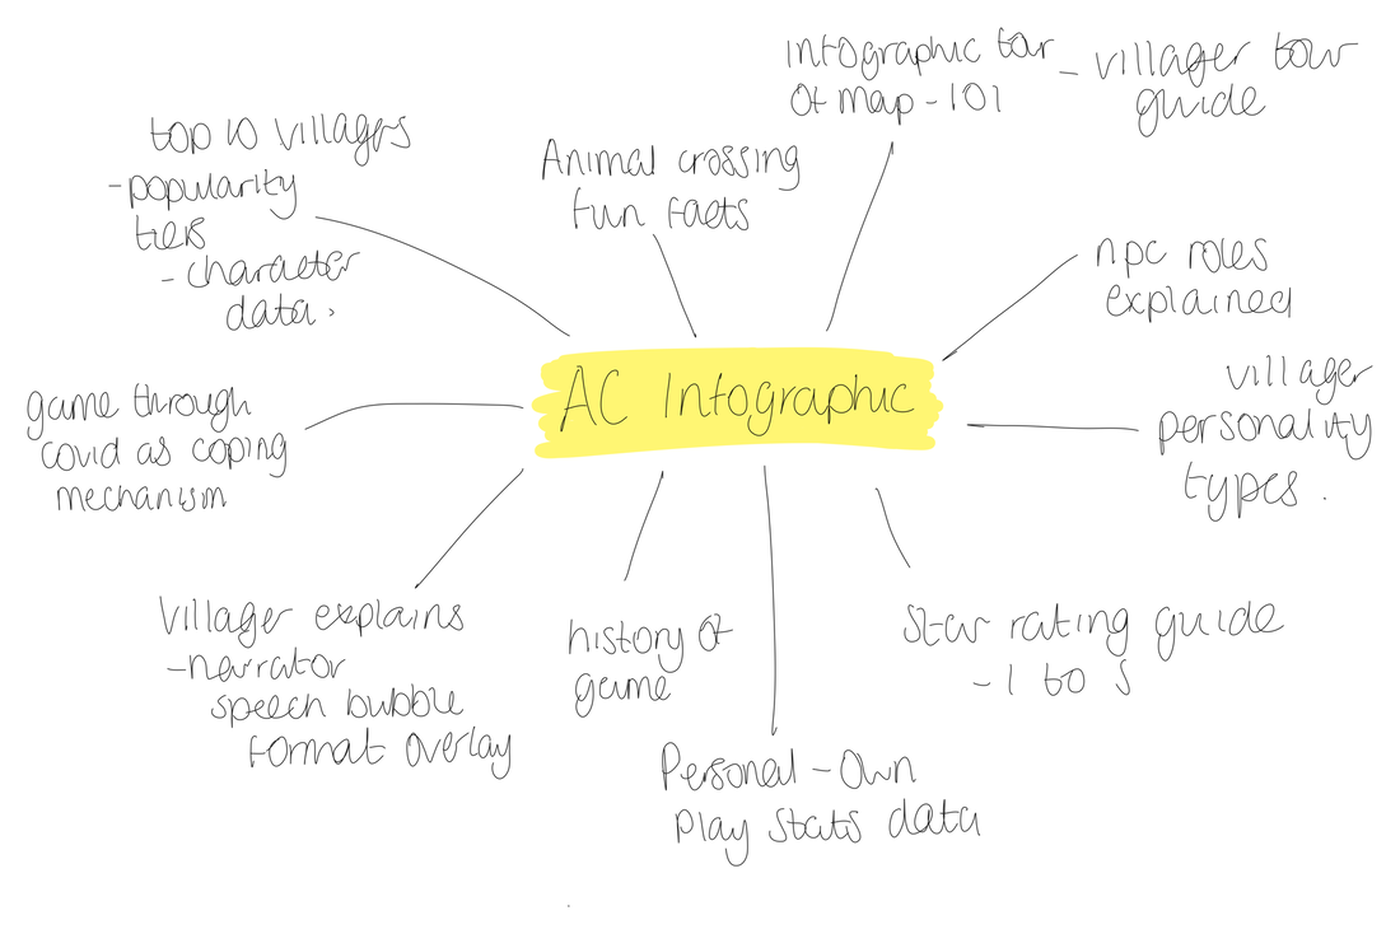 Infographic tour
of map - 101
- villager tour
guide
top 10 villagers
- popularity
tiers
- character
data.
Animal crossing
fun facts
npc roles
explained
AC Infographic
villager
personality
types.
game through
covid as coping
mechanism
Villager explains
- narrator
speech bubble
format overlay
history of
game
Star rating guide
- 1 to 5
Personal - Own
Play Stats data